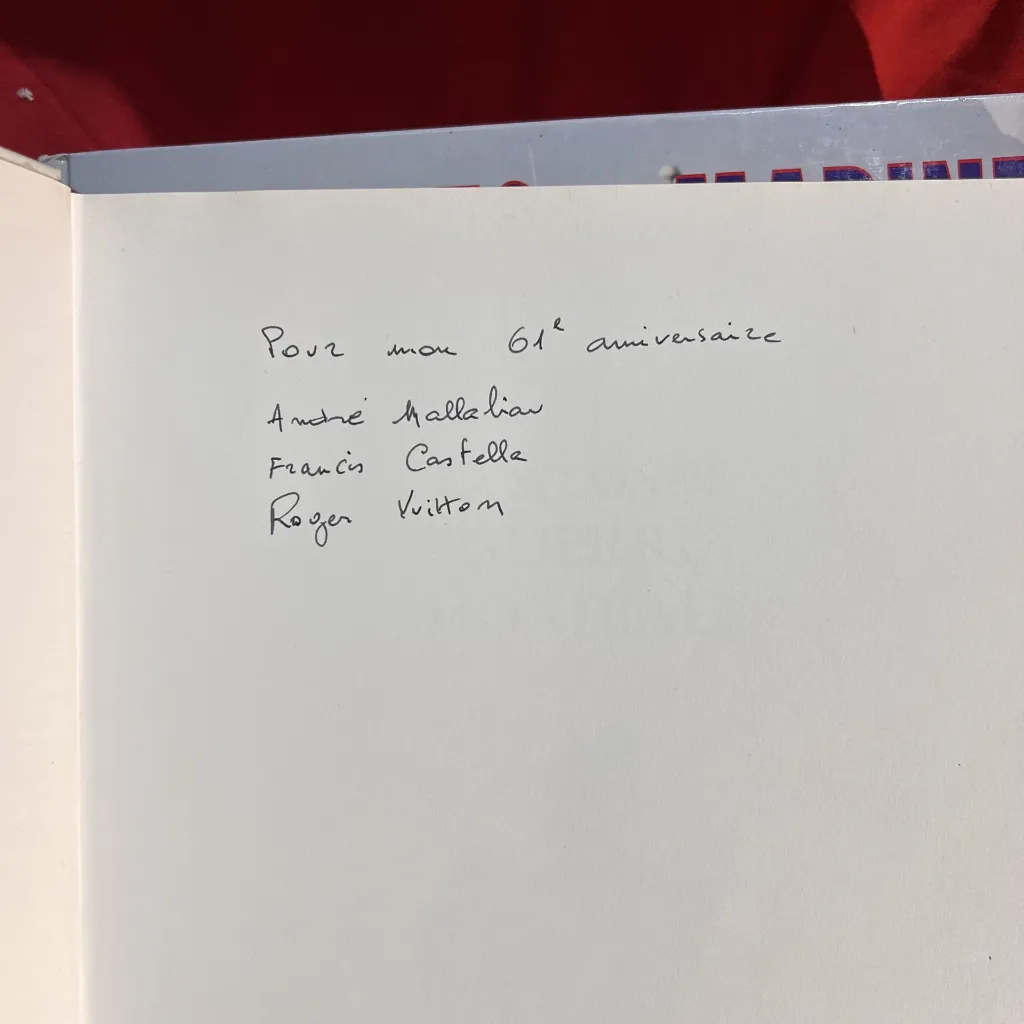 Pour mon 61e anniversaire
André Mallalian
Francis Castella
Roger Vuitton